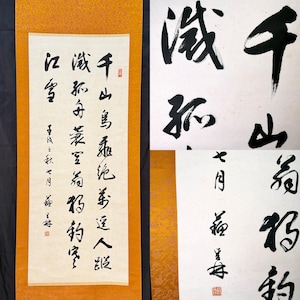 千山鳥飛絶萬逕人蹤
滅孤舟蓑笠翁独釣寒
江雪
之秋七月 蘇 林
千山
滅孤
翁独釣
七月 蘇 林